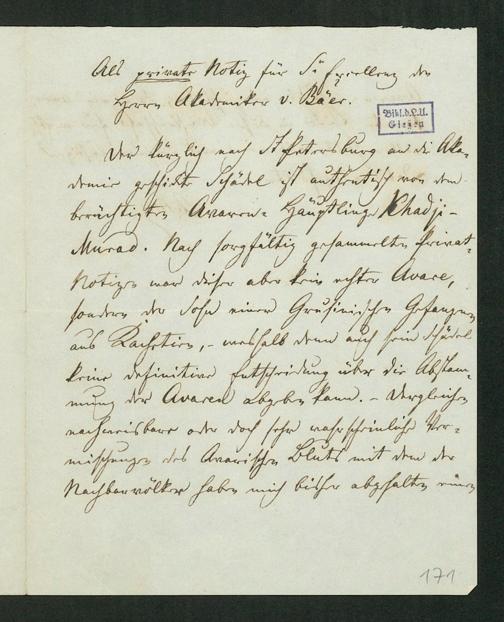 Als private Notiz für Sr Excellenz den
Herrn Akademiker v. Bäer.
Bibl.d.L.U.
Gießen
Der kürzlich nach St Petersburg an die Aka-
demie geschickte Schädel ist authentisch von dem
berüchtigten Avaren-Häuptlinge Khadji-
Murad. Nach sorgfältig gesammelten Privat-
Notizen war dieser aber kein echter Avare,
sondern der Sohn eines Grusinischen Gefangenen
aus Kachetien, – weshalb denn auch sein Schädel
keine definitive Entscheidung über die Abstam-
mung der Avaren abgeben kann. – Dergleichen
nachweisbare oder doch sehr wahrscheinliche Ver-
mischungen des Avarischen Bluts mit dem der
Nachbarvölker haben mich bisher abgehalten einen
171